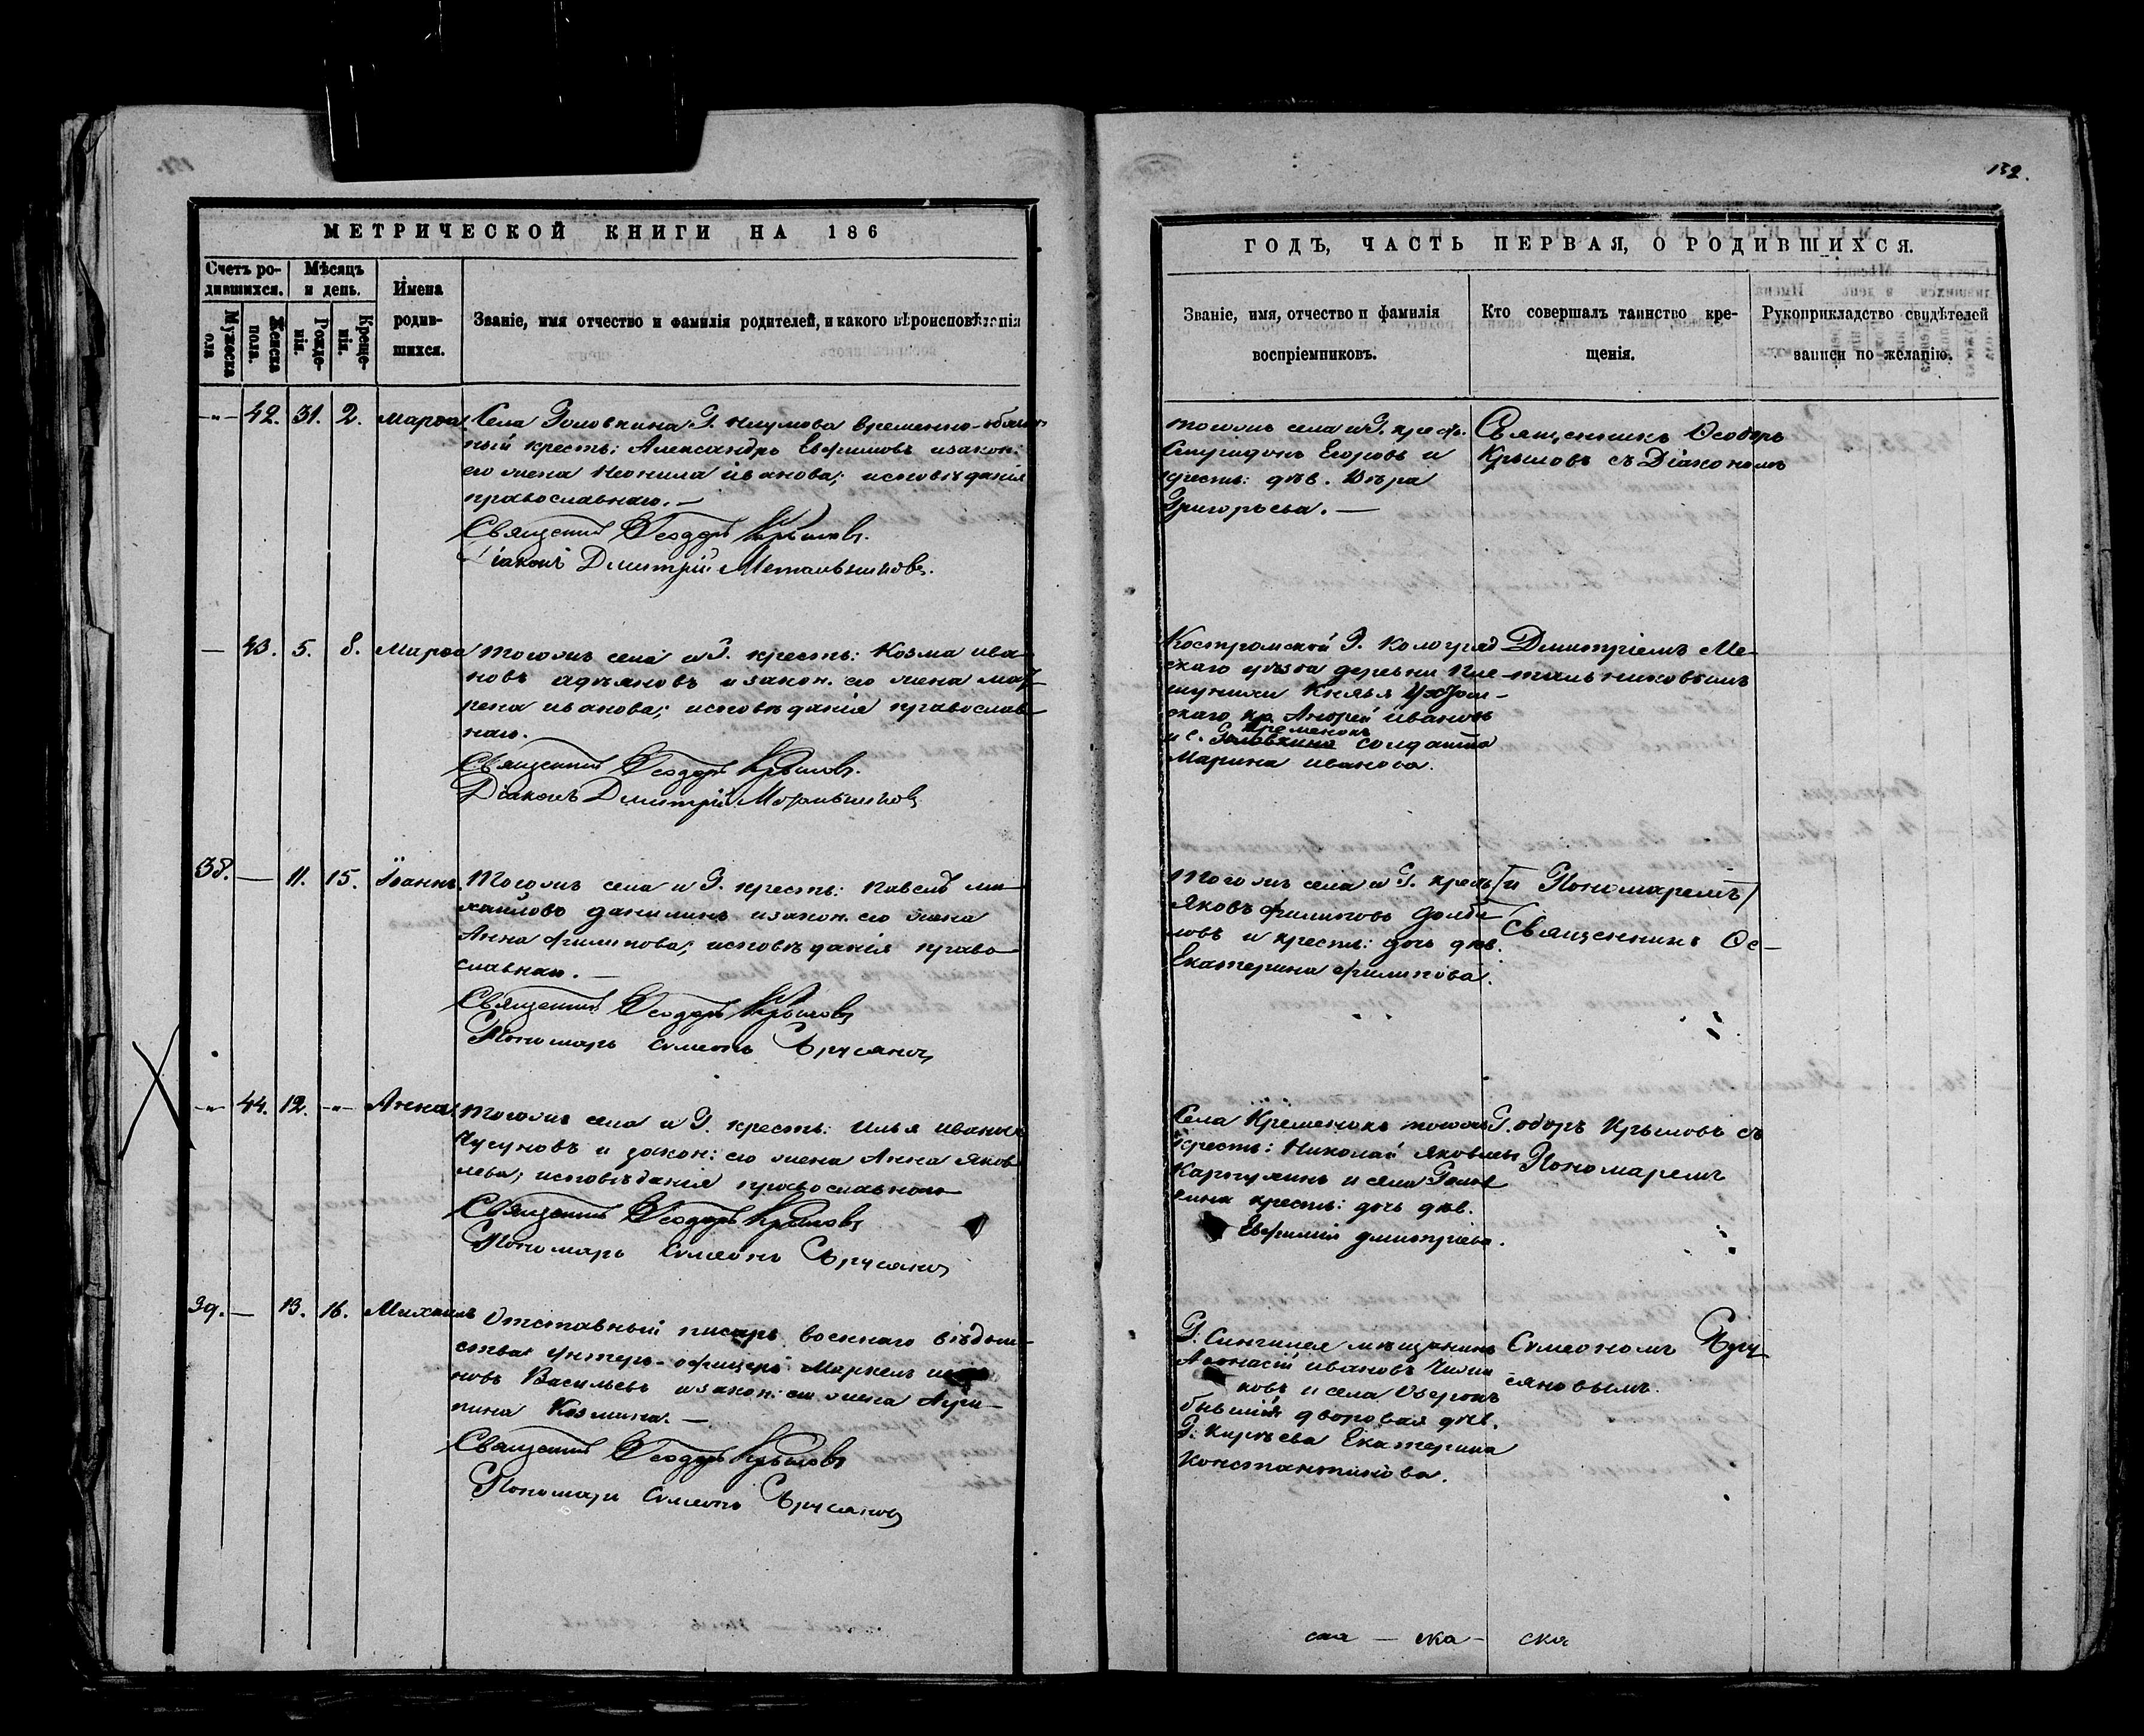 132.
МЕТРИЧЕСКОЙ КНИГИ НА 186
Счетъ ро-
дившихся.
Мѣсяцъ
и день.
Имена
родив-
шихся.
Званіе, имя отчество и фамилія родителей, и какого вѣроисповѣданія
Мужеска
пола
Женска
пола.
Рожде-
нія.
Креще-
нія.
42. 31. 2. Марѳа Села Головкина Г. Наумова временно-обязан-
ный кресть: Александръ Евфимовъ изакон:
его жена Неонила иванова; исповѣданія
православнаго.
Священникъ Ѳеодоръ Крыловъ.
Діаконъ Димитрій Метальниковъ.
43. 5. 8. Марѳа Тогожъ села и Г. кресть: Козма ива-
новъ изакон. его жена мат-
рена иванова; исповѣданія православ-
наго.
Священникъ Ѳеодоръ Крыловъ.
Діаконъ Димитрій Метальниковъ
38. — 11. 15. Іоаннъ. Тогожъ села и Г. кресть: павелъ ми-
хайловъ данилинъ изакон. его жена
Анна филипова; исповѣданія право-
славнаго.
Священникъ Ѳеодоръ Крыловъ
Пономарь Симеонъ
44. 12. Анна. Тогожъ села и Г. кресть: илья ивановъ
Чугуновъ и закон: его жена Анна яков-
лева; исповѣданія православнаго
Священникъ Ѳеодоръ Крыловъ
Пономарь Симеонъ
39. — 13. 16. Михаилъ Отставный писарь военнаго вѣдом-
ства унтеръ-офицеръ Маркелъ
новъ Васильевъ изакон: его жена Агри-
пина Козмина.
Священникъ Ѳеодоръ Крыловъ
Пономарь Симеонъ
ГОДЪ, ЧАСТЬ ПЕРВАЯ, О РОДИВШИХСЯ.
Званіе, имя, отчество и фамилія
воспріемниковъ.
Кто совершалъ таинство кре-
щенія.
Рукоприкладство свидѣтелей
записи по желанію.
тогожъ села и Г. кресть.
Спиридонъ Егоровъ и
кресть: дѣв. Вѣра
Григорьева.
Священникъ Ѳеодоръ
Крыловъ съ Діакономъ
Костромской Г. Кологрив
скаго уѣзда деревни
Князья
скаго кр. Андрей ивановъ
Кременокъ
и с. Головкина солдатка
Марина иванова.
Димитріемъ Ме-
тальниковымъ
Тогожъ села и Г. кресть
Яковъ филиповъ
ловъ и кресть: дочь дѣв.
Екатерина филипова.
и Пономаремъ
Священникъ Ѳе-
Села Кременокъ тогожъ Г.
кресть: Николай яковлевъ
Карпухинъ и села Голов
кина кресть: дочь дѣв.
Евфимія димитріева.
одоръ Крыловъ съ
Пономаремъ
Г: Сингилея мѣщанинъ
Аѳонасій ивановъ
ковъ и села Озерокъ
бывшая дворовая дѣв.
Г: Кирѣева Екатерина
Константинова.
Симеономъ
сяновымъ.
ска — ска — ска